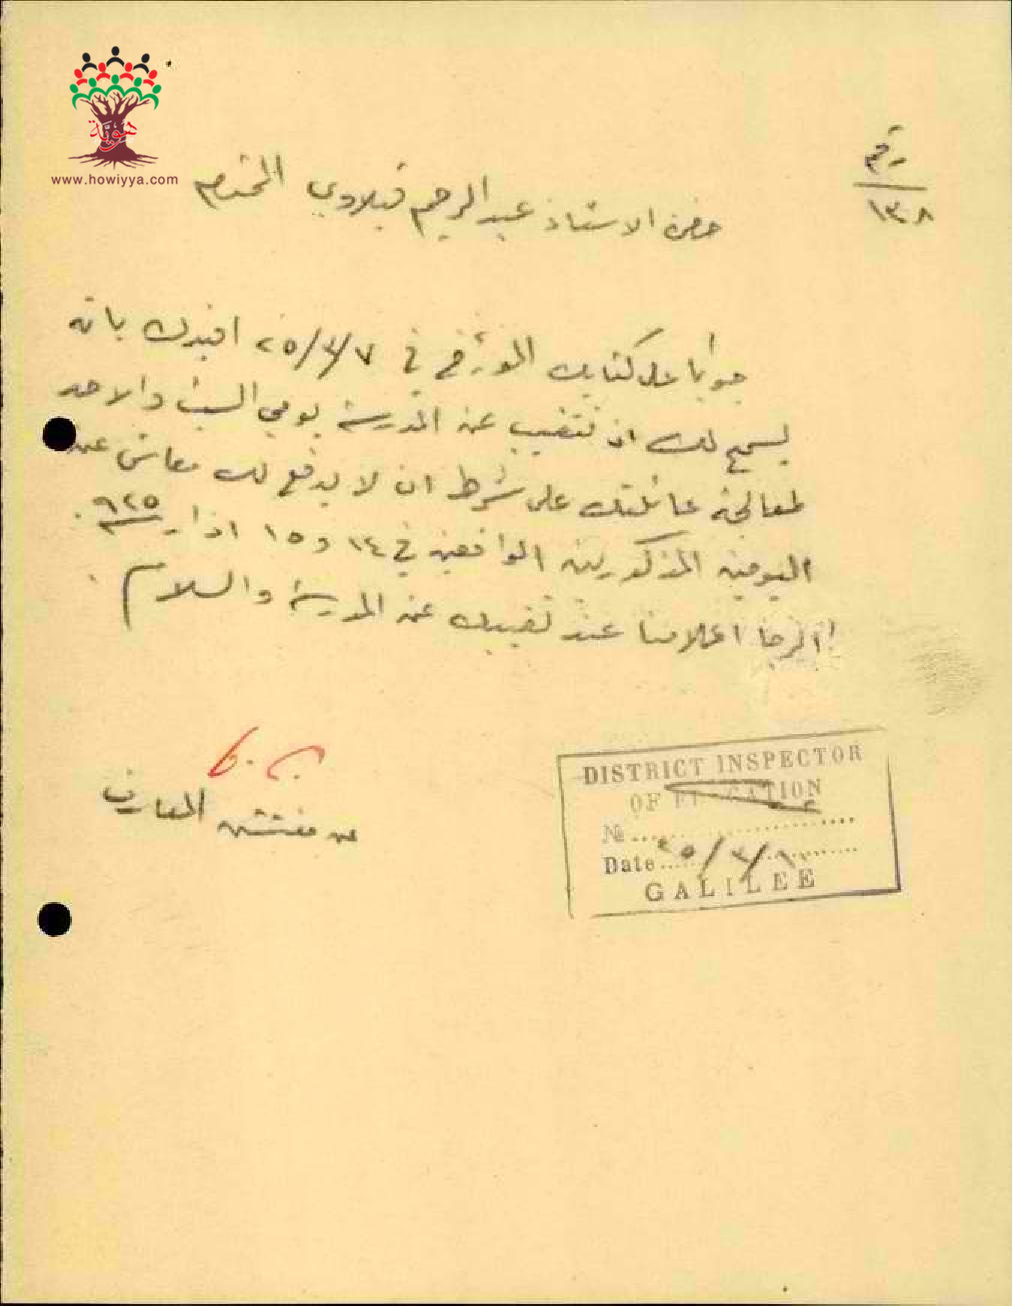 هوية
www.howiyya.com
رقم
١٣٨
حضرة الاستاذ عبد الرحيم المحترم
جوابا على كتابك المؤرخ في ٢٥/٣/٧ افيدك بانه
يسمح لك ان تتغيب عن المدرسة يومي السبت والاحد
لمعالجة عائلتك على شرط ان لا يدفع لك معاش عن
اليومين المذكورين الواقعين في ١٤ و ١٥ اذار ٩٢٥.
الرجا اعلامنا عند تغيبك عن المدرسة والسلام
عن مفتش المعارف
DISTRICT INSPECTOR
OF EDUCATION
№
Date ٢٥/٣/٨
GALILEE